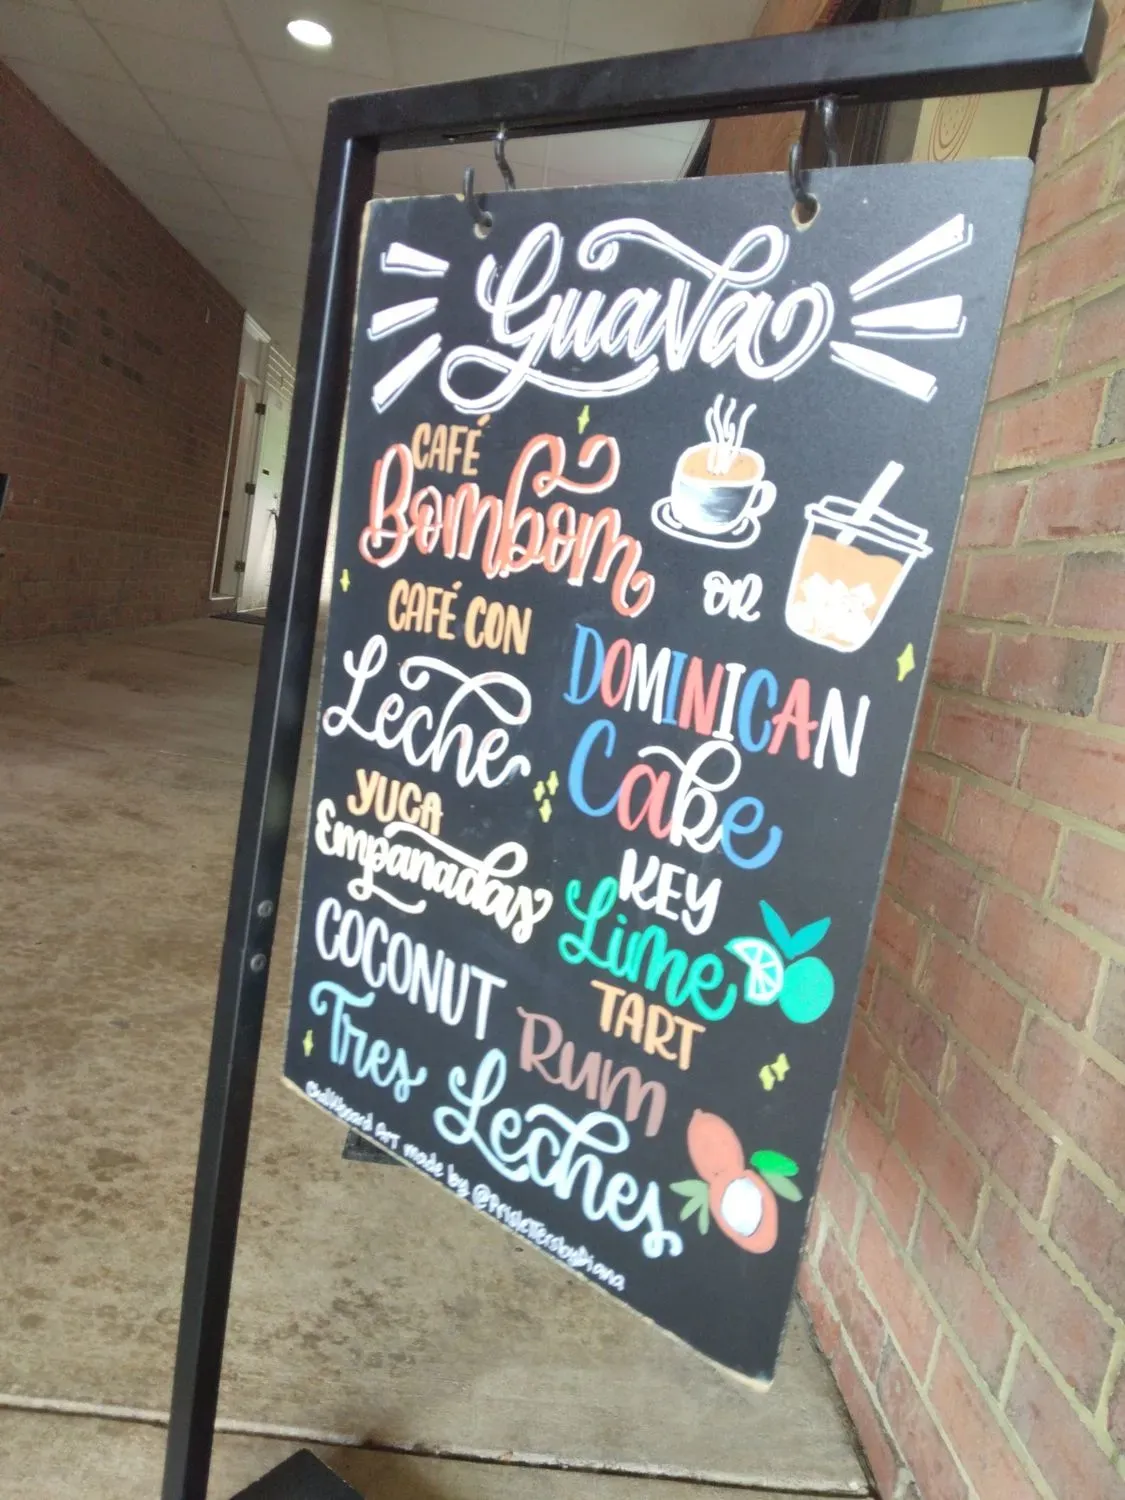 Guava
CAFÉ
Bombom
OR
CAFÉ CON
Leche
DOMINICAN
Cake
YUCA
Empanadas
KEY
Lime
TART
COCONUT
Tres Leches
RUM
Chalkboard Art made by